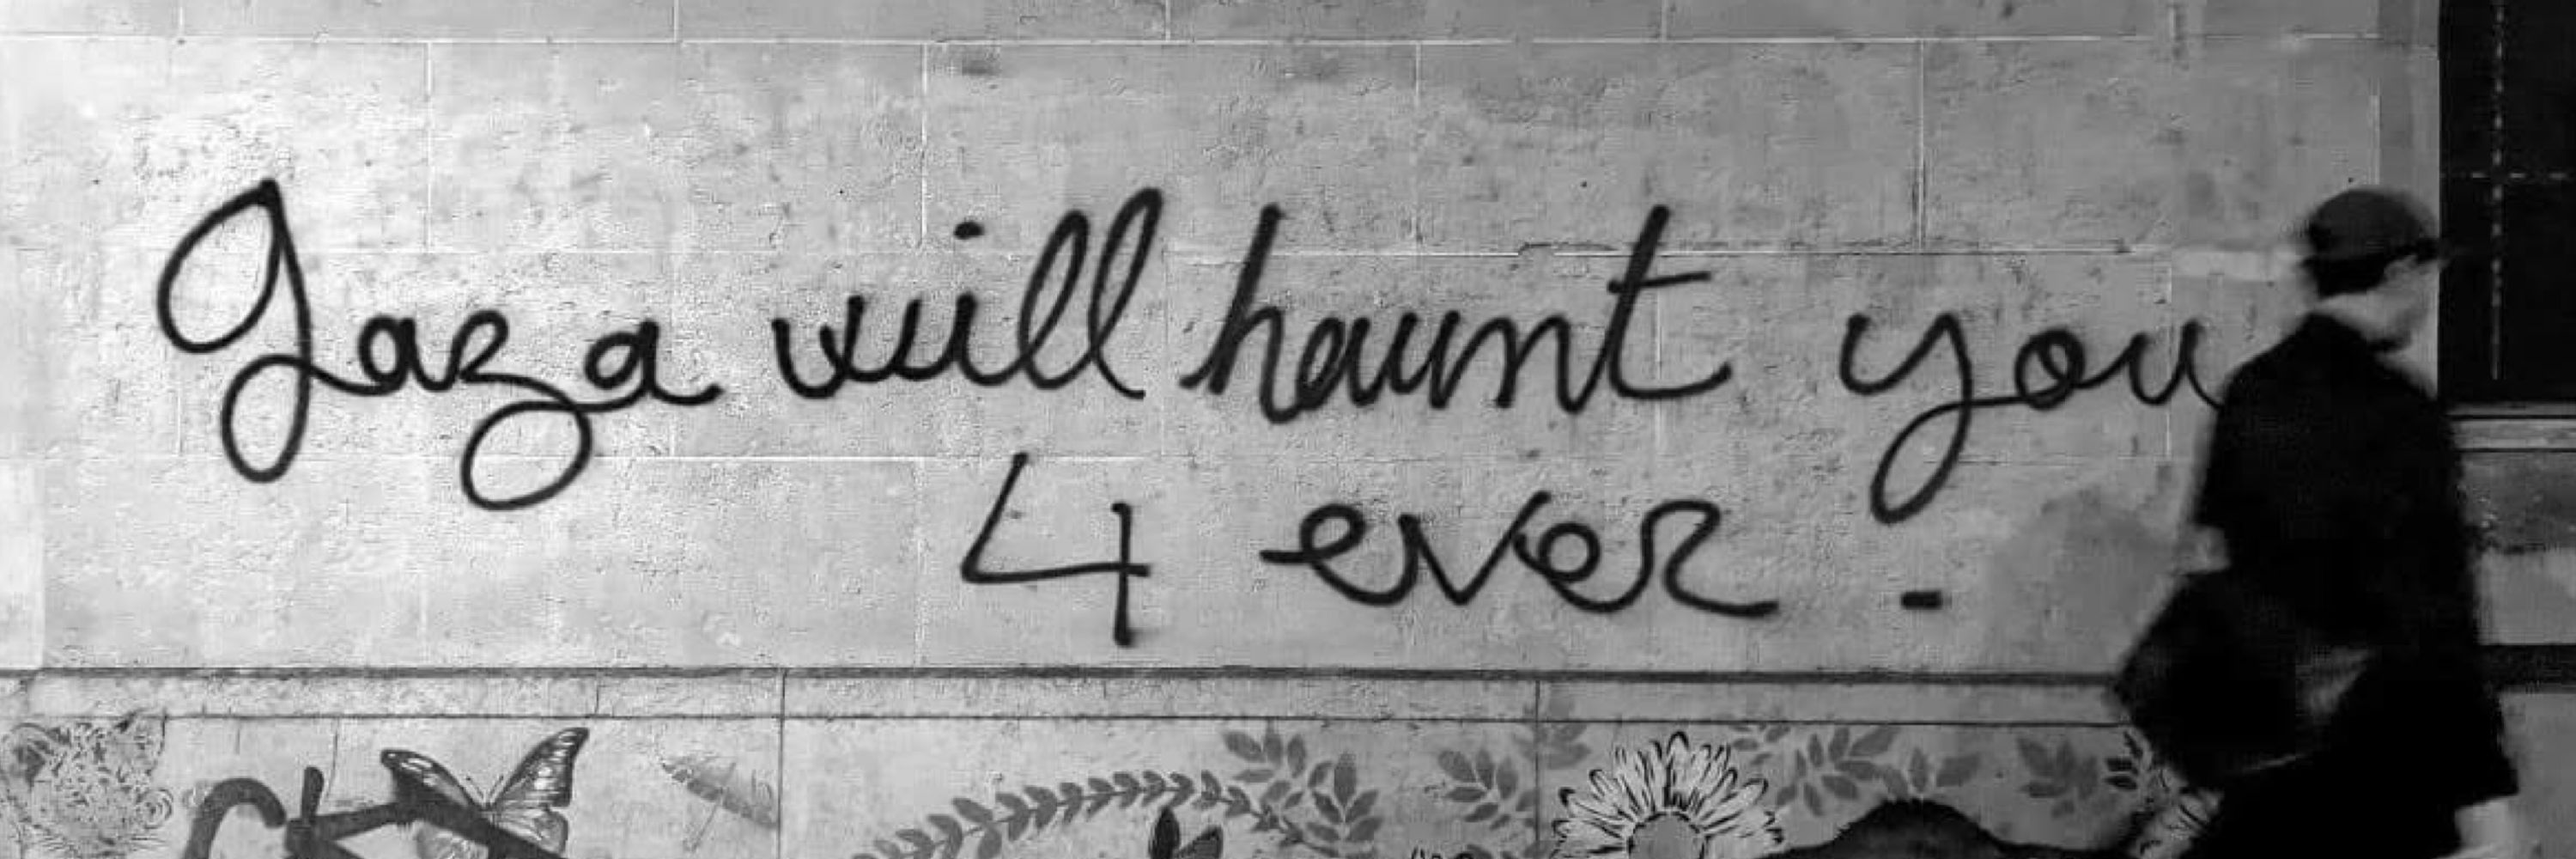 Gaza will haunt you
4 ever -